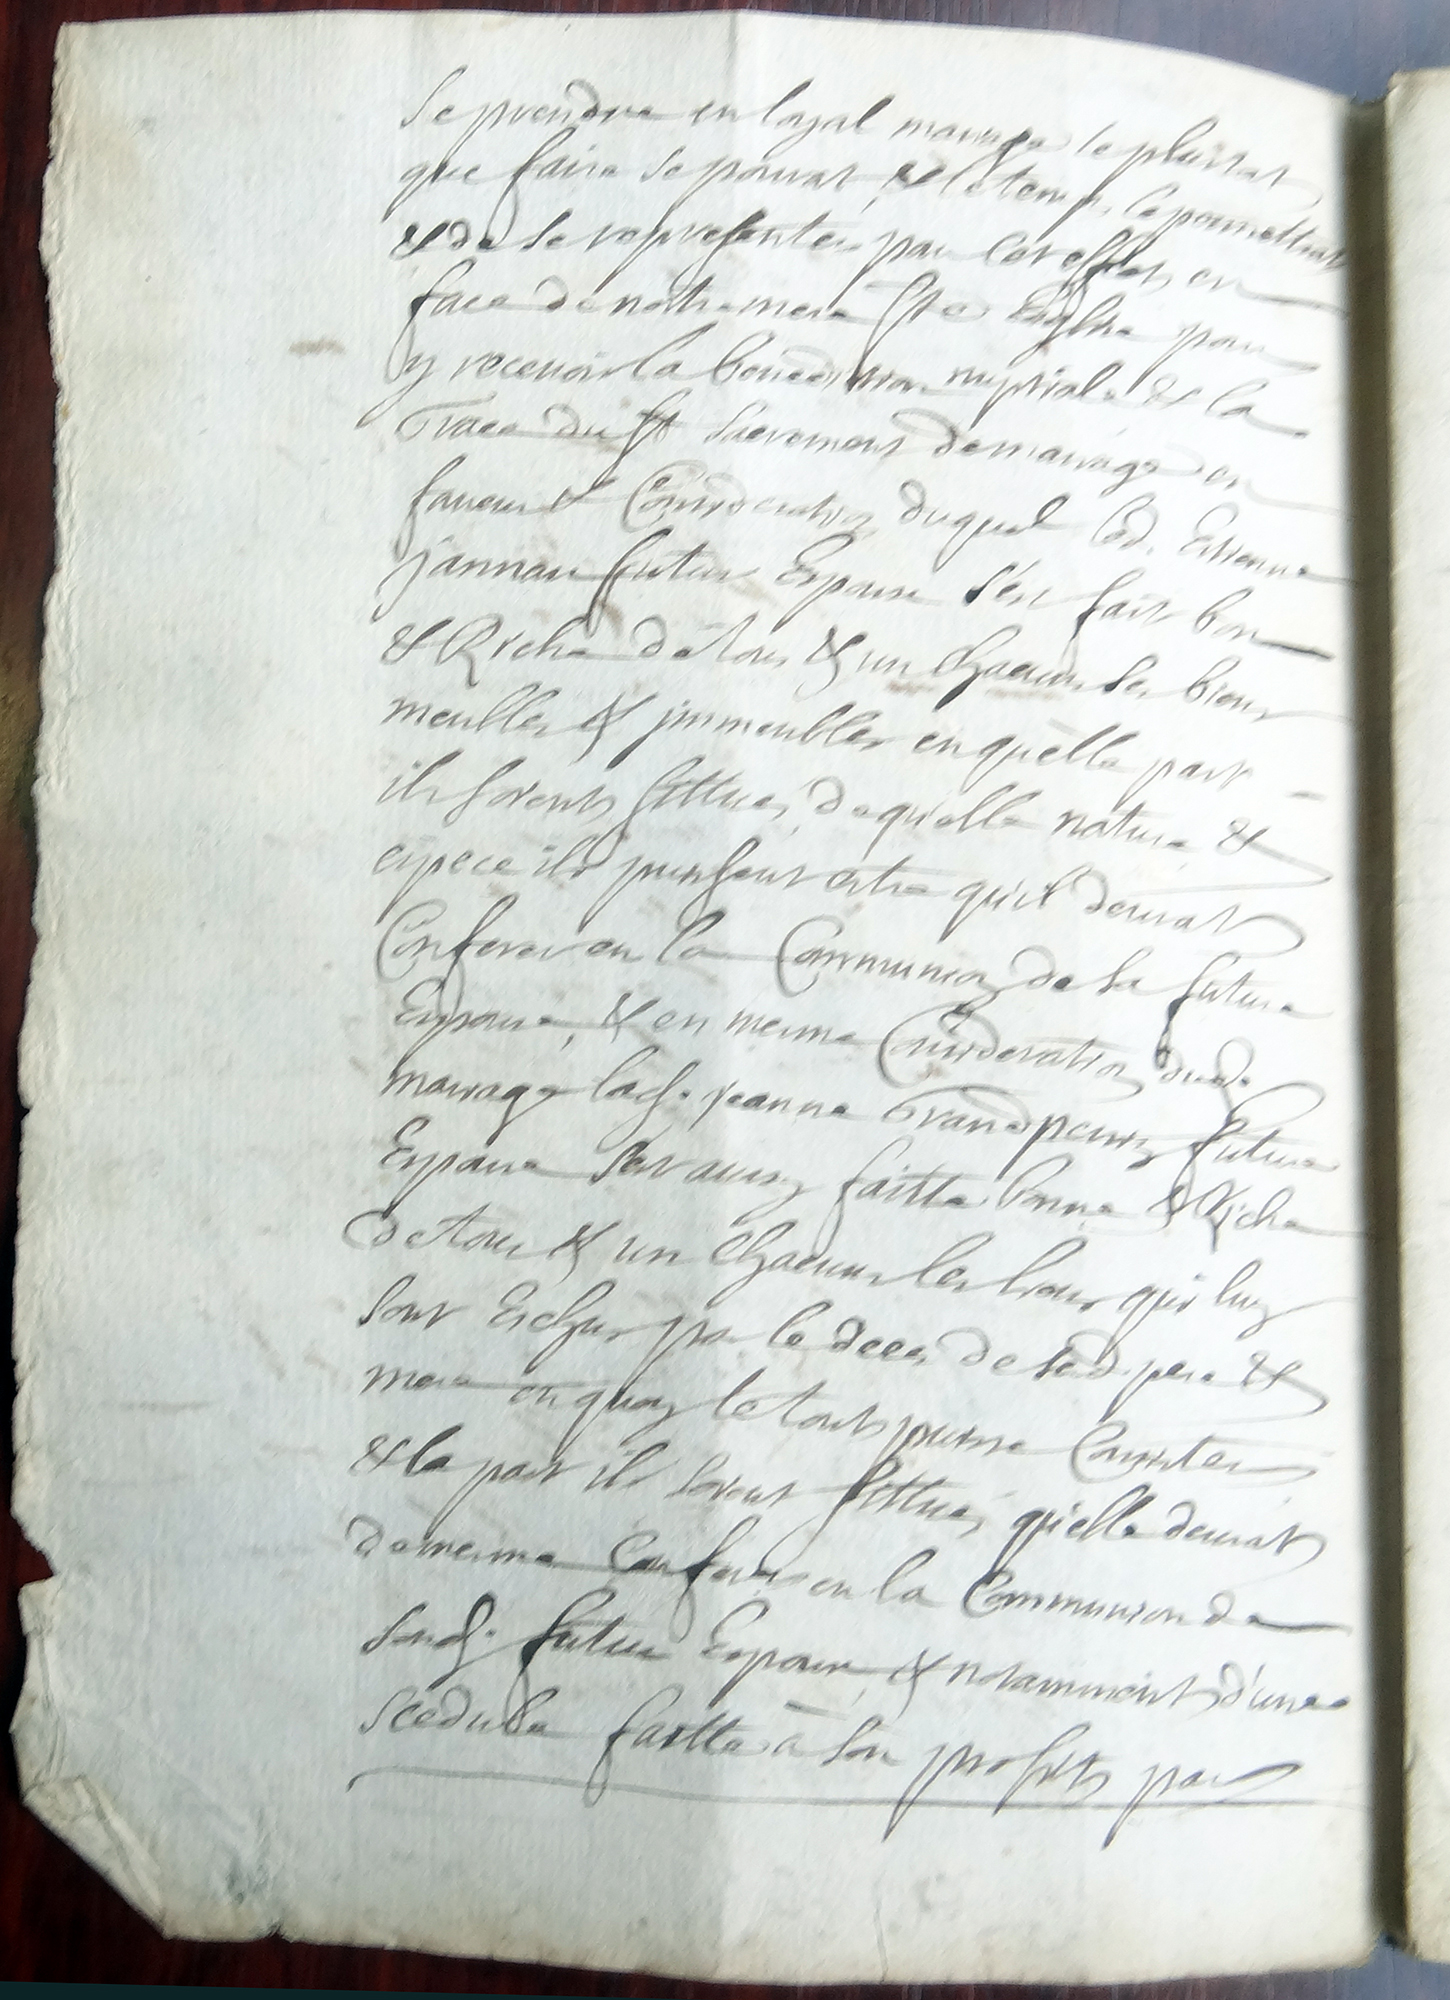 se prendre en loyal mariage le plustot
que faire se pourat, & le temps le permettrat
& de se representer par cet effet en
face de notre mere Ste Esglise pour
y recevoir la benediction nuptiale & la
Grace du St sacrement de mariage en
faveur & Consideration duquel led. Estienne
jannau futur Espoux s'en fait bon
& Riche de tous & un chacuns ses biens
meubles & jmmeubles en quelle part
ils soients sittues, de quelle nature &
espece ils puissent estre qu'il devrat
Conferer en la Communion de sa future
Espouse, & en mesme Consideration dud.
mariage lad. jeanne Grandperrin future
Espouse s'est aussy faitte bonne & Riche
de tous & un chacuns les biens qui luy
sont Eschus par le deces de sesd. pere &
mere en quoy le tout puisse Consister
& la part ils soient sittués, qu'elle devrat
de mesme Conferer en la Communion de
sond. futur Espoux, & notamment d'une
scedule faitte à son profits par